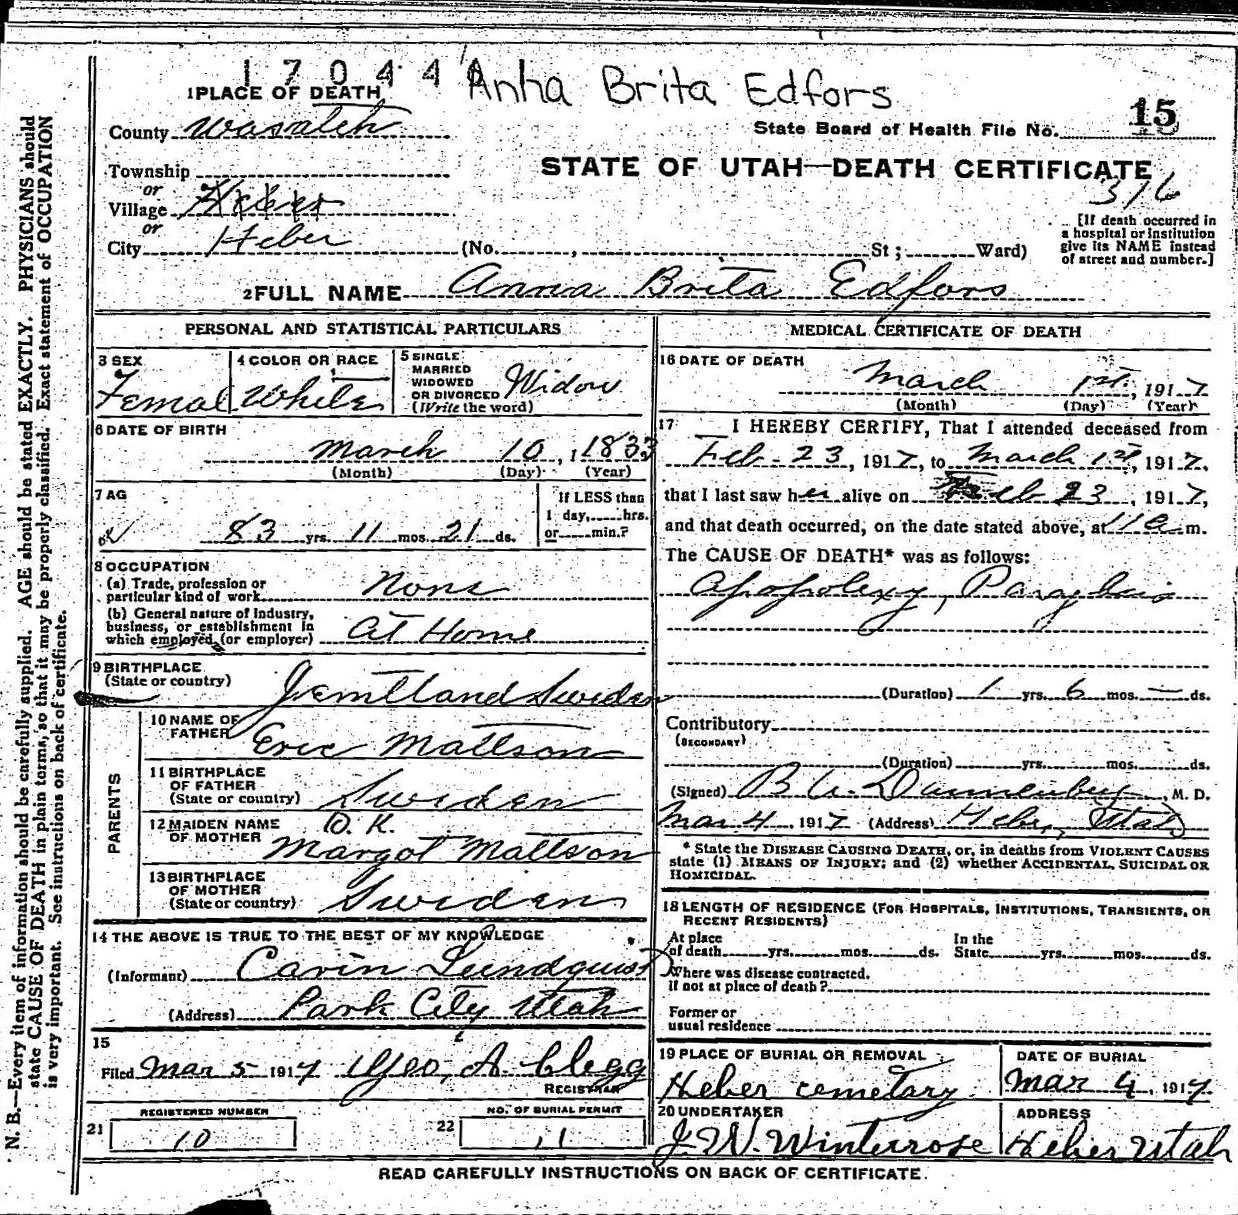 17044
Anna Brita Edfors
1 PLACE OF DEATH
County Wasatch
State Board of Health File No. 15
STATE OF UTAH—DEATH CERTIFICATE
316
Township
or
Village Heber
or
City Heber (No. , St; Ward)
[If death occurred in
a hospital or institution
give its NAME instead
of street and number.]
2 FULL NAME Anna Brita Edfors
PERSONAL AND STATISTICAL PARTICULARS
3 SEX
Femal
4 COLOR OR RACE
White
5 SINGLE
MARRIED
WIDOWED
OR DIVORCED
(Write the word)
Widow
6 DATE OF BIRTH
March 10, 1833
(Month) (Day) (Year)
7 AG
83 yrs. 11 mos. 21 ds.
If LESS than
1 day, hrs.
or min.?
8 OCCUPATION
(a) Trade, profession or
particular kind of work None
(b) General nature of industry,
business, or establishment in
which employed (or employer) At Home
9 BIRTHPLACE
(State or country) Jemtland Sweden
PARENTS
10 NAME OF
FATHER Eric Mattson
11 BIRTHPLACE
OF FATHER
(State or country) Sweden
12 MAIDEN NAME O.K.
OF MOTHER Margot Mattson
13 BIRTHPLACE
OF MOTHER
(State or country) Sweden
14 THE ABOVE IS TRUE TO THE BEST OF MY KNOWLEDGE
(Informant) Carin Lundquist
(Address) Park City Utah
15
Filed Mar 5 1917 Geo. A. Clegg
REGISTRAR
REGISTERED NUMBER
21 10
NO. OF BURIAL PERMIT
22 11
MEDICAL CERTIFICATE OF DEATH
16 DATE OF DEATH
March 1st, 1917
(Month) (Day) (Year)
17 I HEREBY CERTIFY, That I attended deceased from
Feb 23, 1917, to March 1st, 1917,
that I last saw her alive on Feb 23, 1917,
and that death occurred, on the date stated above, at 11 a m.
The CAUSE OF DEATH* was as follows:
Apopolexy,
(Duration) 1 yrs. 6 mos. — ds.
Contributory
(SECONDARY)
(Duration) yrs. mos. ds.
(Signed) Dannenberg, M. D.
Mar 4 1917 (Address) Heber, Utah
* State the DISEASE CAUSING DEATH, or, in deaths from VIOLENT CAUSES
state (1) MEANS OF INJURY; and (2) whether ACCIDENTAL, SUICIDAL OR
HOMICIDAL.
18 LENGTH OF RESIDENCE (FOR HOSPITALS, INSTITUTIONS, TRANSIENTS, OR
RECENT RESIDENTS)
At place
of death yrs. mos. ds.
In the
State yrs. mos. ds.
Where was disease contracted.
if not at place of death?
Former or
usual residence
19 PLACE OF BURIAL OR REMOVAL
Heber cemetary
DATE OF BURIAL
Mar 4, 1917
20 UNDERTAKER
J. W. Winterrose
ADDRESS
Heber Utah
READ CAREFULLY INSTRUCTIONS ON BACK OF CERTIFICATE.
N. B.—Every item of information should be carefully supplied. AGE should be stated EXACTLY. PHYSICIANS should
state CAUSE OF DEATH in plain terms, so that it may be properly classified. Exact statement of OCCUPATION
is very important. See instructions on back of certificate.